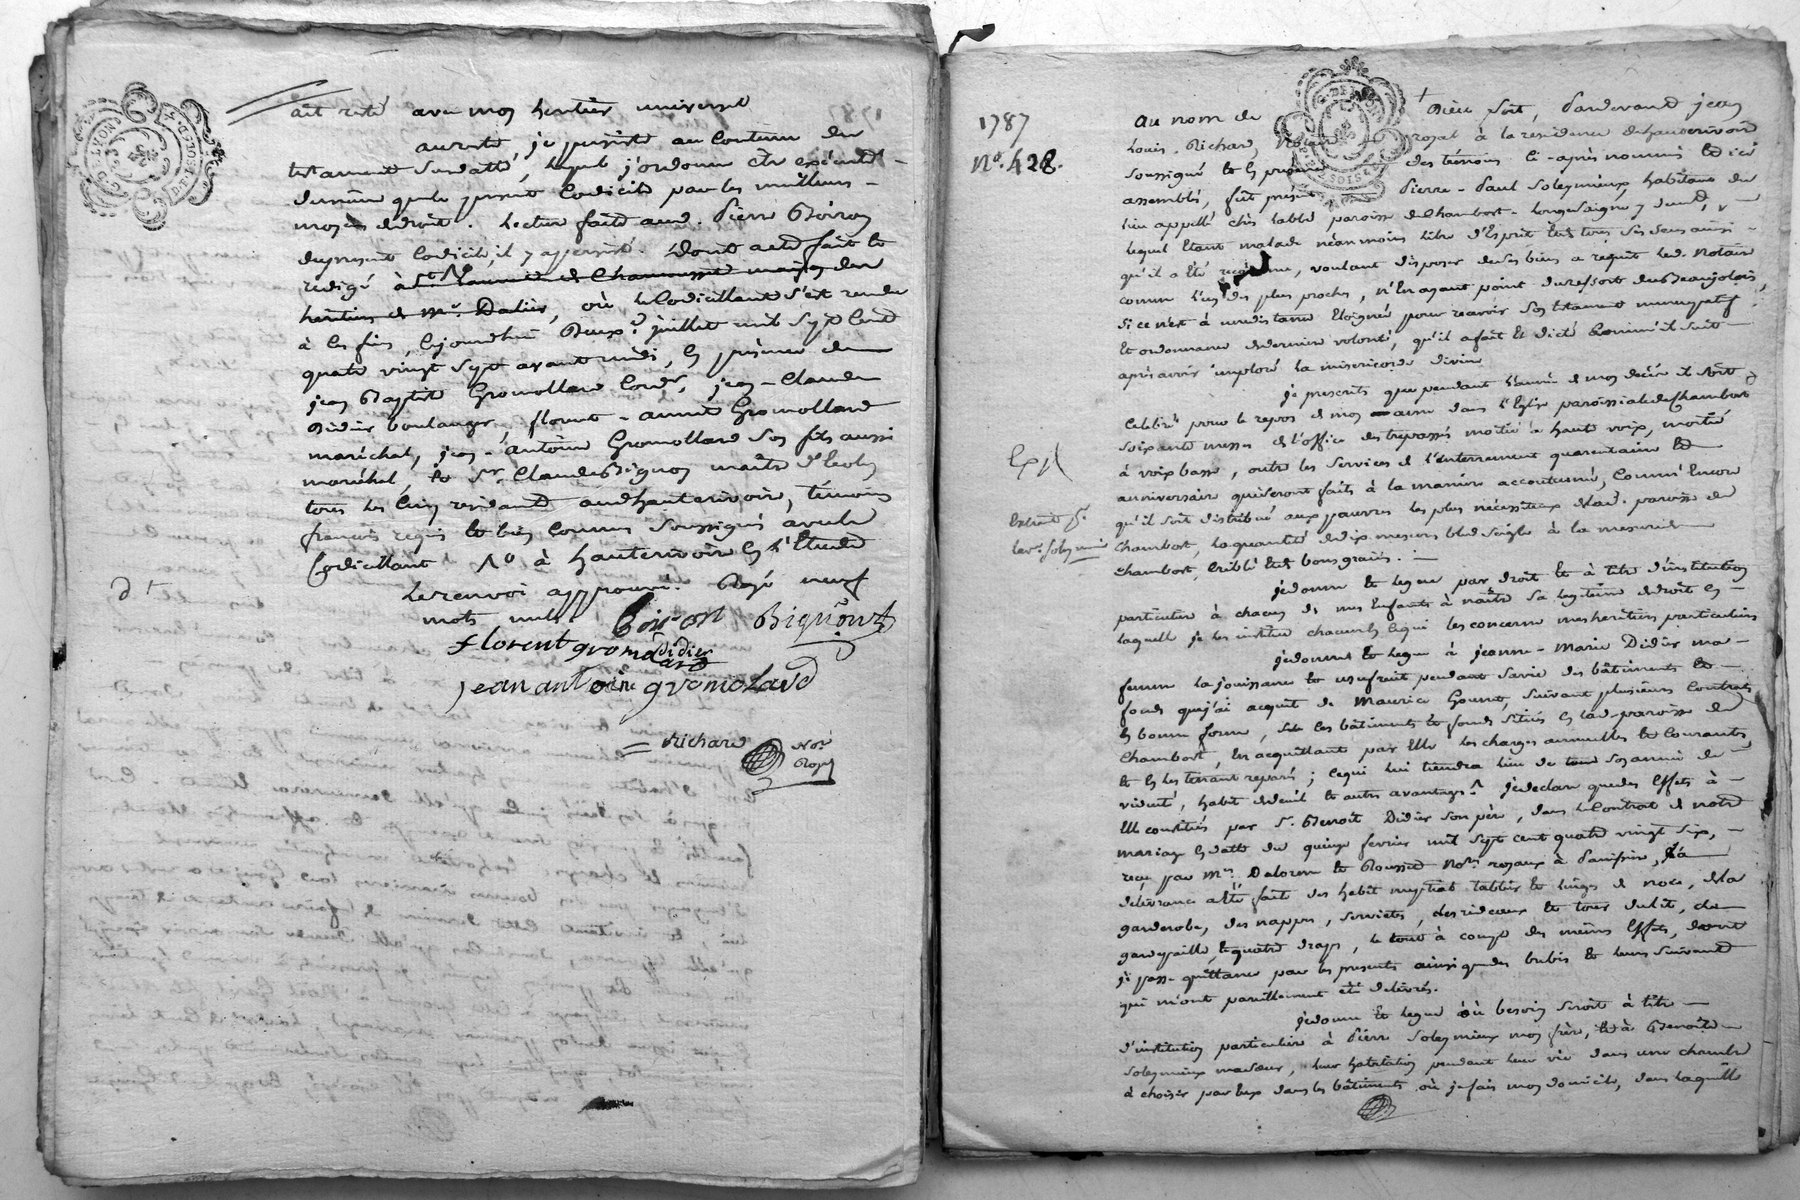 ait resté avec mon heritier universel
au reste, je persiste au contenu du
testament susdatté, lequel j'ordonne etre executé
de meme que le present Codicile par les meilleurs
moyens de droit. Lecture faite aud. Pierre Boiron
du present Codicile, il y a persisté. Dont acte fait et
redigé à
heritiers de Mr. Dalier, où le Codicillant s'est rendu
à ces fins, cejourdhui Deux juillet mil sept cent
quatre vingt sept avant midi, en presence de
jean Baptiste Gromollard Cordr, jean-Claude
Didier boulanger, florent-annet Gromollard
maréchal, jean-antoine Gromollard son fils aussi
maréchal, et Sr. Claude Bignon maitre d'Ecole
tous les cinq residants aud hauterivoire, temoins
francois requis et bien connus soussignés avec le
Codicillant à hauterivoire en l'Etude
Le renvoi approuvé. Rayé neuf
mots nuls.
Boiron Bignon
florent gromolard didier
jean antoine gromolard
Richard Nore Royal
1787
No. 428.
au nom de Dieu soit, Pardevant jean
Louis Richard Notaire royal à la residence de hauterivoire
soussigné et en presence des témoins ci-après nommés et ici
assemblés, fut présent Pierre-Paul Soleymieux habitant du
lieu appellé chés labbé paroisse de Chambost-Longessaigne y
lequel etant malade néanmoins libre d'Esprit et de tous ses sens ainsi
qu'il a été reconnu, voulant disposer de ses biens a requis led. Notaire
comme l'un des plus proches, n'en ayant point du ressort du Beaujolois,
si ce n'est à une distance eloignée pour recevoir son testament nuncupatif
et ordonnance de derniere volonté, qu'il a fait et dicté comme il suit
après avoir imploré la misericorde divine
je prescrits que pendant l'année de mon décès il soit
celebré pour le repos de mon ame dans l'Eglise paroissiale de Chambost
soixante messes de l'office des trepassés moitié à haute voix, moitié
à voix basse, outre les services de l'enterrement quarantaine et
anniversaire qui seront faits à la maniere accoutumée, comm'encore
qu'il soit distribué aux pauvres les plus nécéssiteux de lad. paroisse de
Chambost, la quantité de dix mesures bled seigle à la mesure de
Chambost, criblé et de bons grains.
Expé
Extrait
Soleymieu
je donne et legue par droit et à titre d'institution
particuliere à chacun de mes Enfants à naitre sa legitime de droit en
laquelle je les institue chacun en ce qui les concerne mes heritiers particuliers
je donne et legue à jeanne-Marie Didier ma
femme la jouissance et usufruit pendant sa vie des bâtiments et
fonds que j'ai acquit de Maurice suivant plusieurs Contrats
en bonne forme, les bâtiments et fonds situés en lad. paroisse de
Chambost, en acquittant par elle les charges annuelles et courantes
et en les tenant reparés; ce qui lui tiendra lieu de tout son année de
viduité, habit de deuil et autres avantages. je declare que des effets à
Elle constitués par Sr. Benoit Didier son père, dans le Contrat de notre
mariage en datte du quinze fevrier mil sept cent quatre vingt six,
recu par Mes. Delorme et Roussel Nores. royaux à Panissiere, la
delivrance a été faite des habits nuptiaux tablier et linges de noce, de la
garderobe, des nappes, serviettes, des rideaux et tour du lit, du
gardepaille, et quatre draps, le tout à compte des memes effets, dont
je passe quittance par les presentes ainsi que des brebis et leurs suivant
qui m'ont pareillement été delivrés.
je donne et legue où besoin seroit à titre
d'institution particuliere à Pierre Soleymieux mon frère, et à Benoite
Soleymieux ma sœur, leur habitation pendant leur vie dans une chambre
à choisir par eux dans les bâtiments où je fais mon domicile, dans laquelle